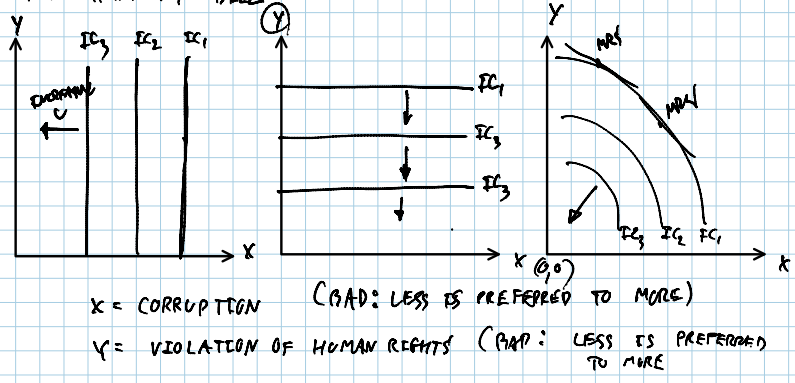 Y
IC3 IC2 IC1
INCREASING
U
X
Y
IC1
IC3
IC3
X
Y
MRS
MRS
IC3 IC2 IC1
(0,0)
X
X = CORRUPTION (BAD: LESS IS PREFERRED TO MORE)
Y = VIOLATION OF HUMAN RIGHTS (BAD: LESS IS PREFERRED
TO MORE